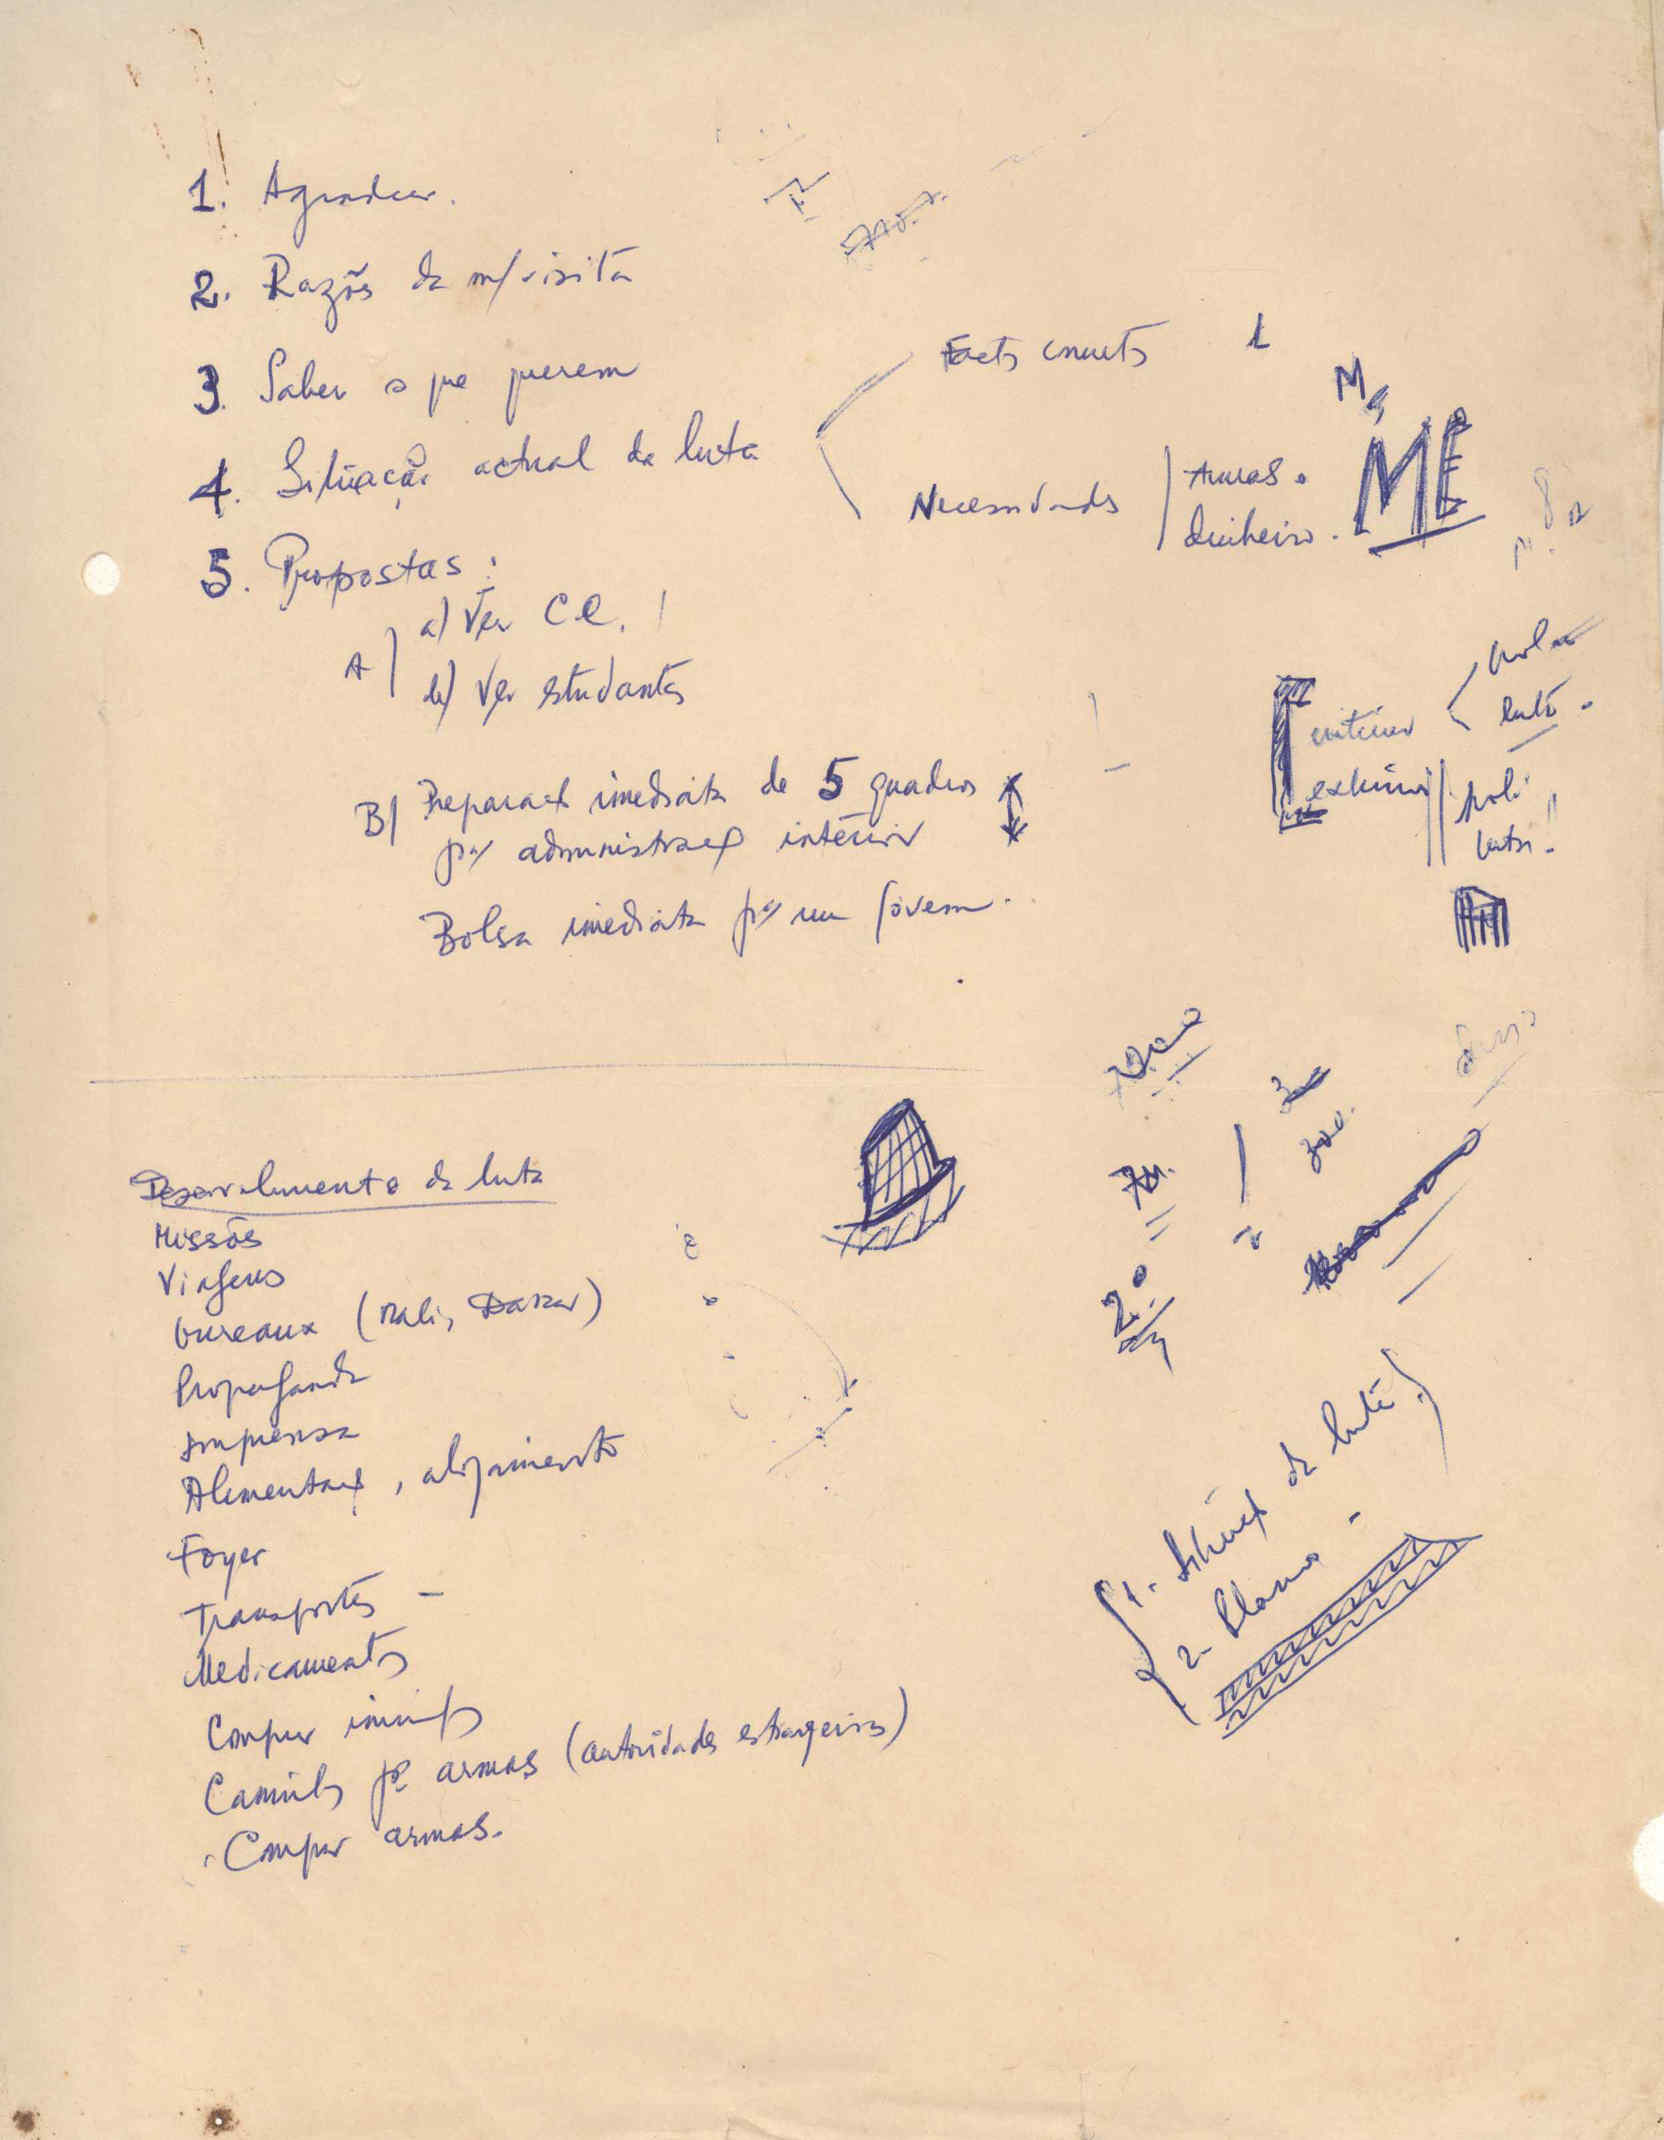 1. Agradecer.
2. Razões da m/visita
3. Saber o que querem
4. Situação actual da luta
Factos concretos 1
Necessidades
Armas.
dinheiro.
M
ME
5. Propostas:
A) a) Ver C.C.
b) Ver estudantes
B) Preparaç imediata de 5 quadros
pª administraç interior
Bolsa imediata pª um jovem.
interior
luta.
exterior
poli
luta!!
Desenvolvimento da luta
Missões
Viagens
bureaux (Mali, Dakar)
Propaganda
Imprensa
Alimentaç, alojamento
Foyer
Transportes -
Medicamentos
300.
20
1. Situaç da luta
2- Planos -
Caminhos pª armas (autoridades estrangeiras)
Comprar armas.